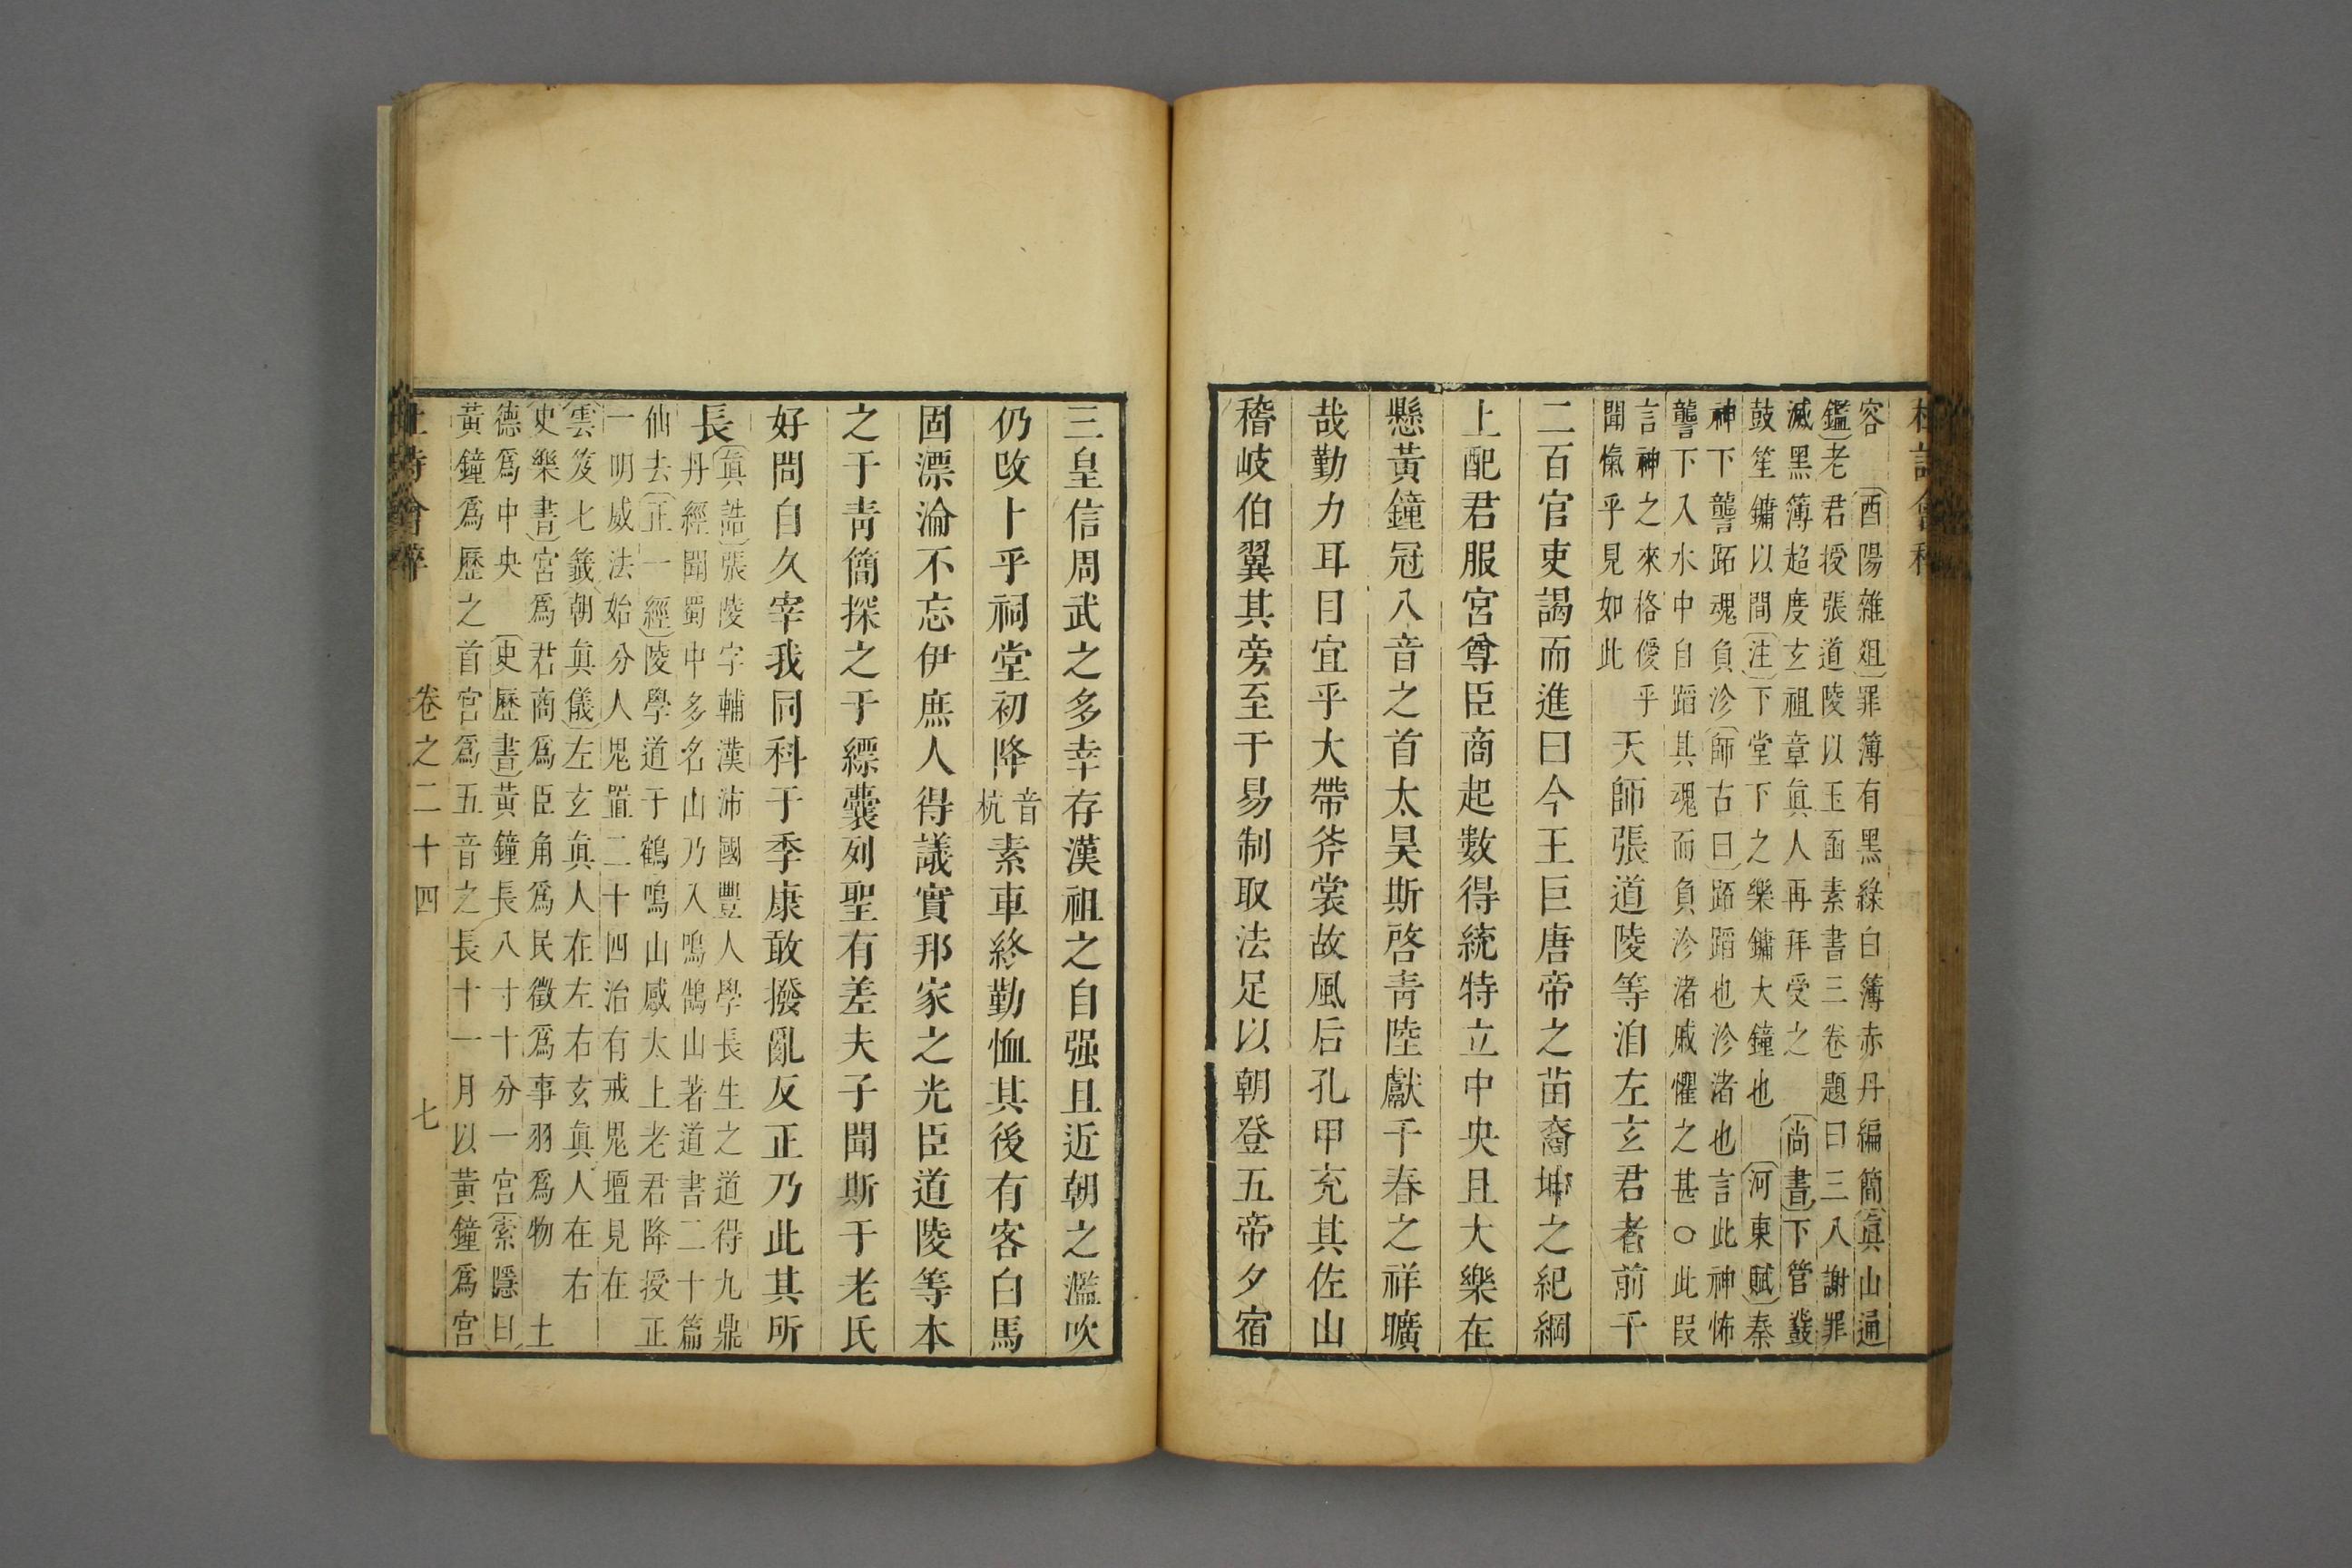 容　〔酉陽雜俎〕罪簿有黑綠白簿赤丹編簡〔眞山通
鑑〕老君授張道陵以玉函素書三卷題曰三八謝罪
滅黑簿超度玄祖章眞人再拜受之　〔尚書〕下管鼗
鼓笙鏞以間〔注〕下堂下之樂鏞大鐘也　〔河東賦〕秦
神下讋跖魂負沴〔師古曰〕蹠蹈也沴渚也言此神怖
讋下入水中自蹈其魂而負沴渚戚懼之甚○此叚
言神之來格僾乎
聞愾乎見如此
天師張道陵等洎左玄君者前千
二百官吏謁而進曰今王巨唐帝之苗裔坤之紀綱
上配君服宮尊臣商起數得統特立中央且大樂在
懸黃鐘冠八音之首太昊斯啓靑陸獻千春之祥曠
哉勤力耳目宜乎大帶斧裳故風后孔甲充其佐山
稽岐伯翼其旁至于易制取法足以朝登五帝夕宿
三皇信周武之多幸存漢祖之自强且近朝之濫吹
仍攺卜乎祠堂初降音杭素車終勤恤其後有客白馬
固漂淪不忘伊庶人得議實邦家之光臣道陵等本
之于靑簡探之于縹囊列聖有差夫子聞斯于老氏
好問自久宰我同科于季康敢撥亂反正乃此其所
長
〔眞誥〕張陵字輔漢沛國豐人學長生之道得九鼎
丹經聞蜀中多名山乃入鳴鵠山著道書二十篇
仙去〔正一經〕陵學道于鶴鳴山感太上老君降授正
一明威法始分人鬼置二十四治有戒鬼壇見在
〔雲笈七籤〕〔朝眞儀〕左玄眞人在左右玄眞人在右
〔史樂書〕宮爲君商爲臣角爲民徵爲事羽爲物　土
德爲中央　〔史歷書〕黃鐘長八寸十分一宮〔索隱曰〕
黃鐘爲歷之首宮爲五音之長十一月以黃鐘爲宮
卷之二十四　七